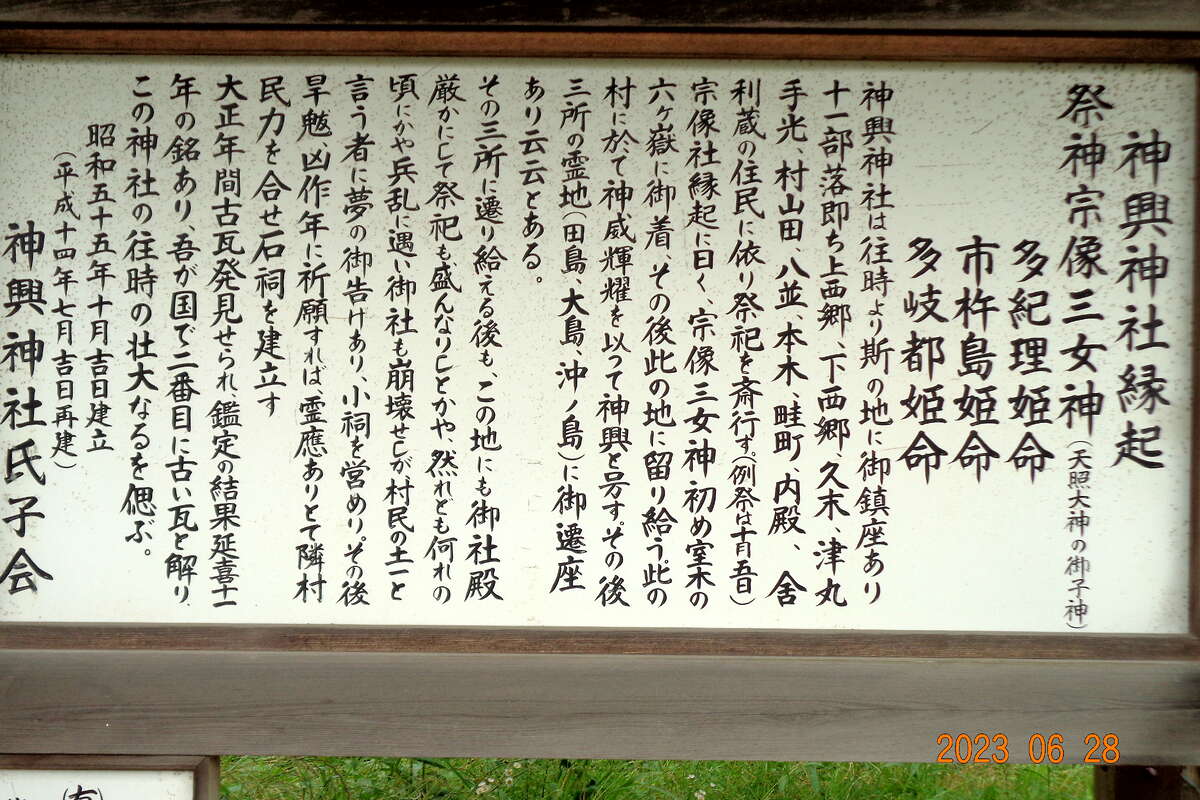 神興神社縁起
祭神宗像三女神(天照大神の御子神)
多紀理姫命
市杵島姫命
多岐都姫命
神興神社は往時より斯の地に御鎮座あり
十一部落即ち上西郷、下西郷、久末、津丸
手光、村山田、八並、本木、畦町、内殿、舎
利蔵の住民に依り祭祀を斎行す。(例祭は十月五日)
宗像社縁起に曰く、宗像三女神初め室木の
六ヶ嶽に御着、その後此の地に留り給う。此の
村に於て神威輝耀を以って神興と号す。その後
三所の霊地(田島、大島、沖ノ島)に御遷座
あり云云とある。
その三所に遷り給える後も、この地にも御社殿
厳かにして祭祀も盛んなりしとかや、然れども何れの
頃にかや兵乱に遇い御社も崩壊せしが、村民の土一と
言う者に夢の御告けあり、小祠を営めり。その後
旱魃、凶作年に祈願すれば霊應ありとて隣村
民力を合せ石祠を建立す
大正年間古瓦発見せられ、鑑定の結果延喜十一
年の銘あり、吾が国で二番目に古い瓦と解り
この神社の往時の壮大なるを偲ぶ。
昭和五十五年十月吉日建立
(平成十四年七月吉日再建)
神興神社氏子会
(有)
2023 06 28